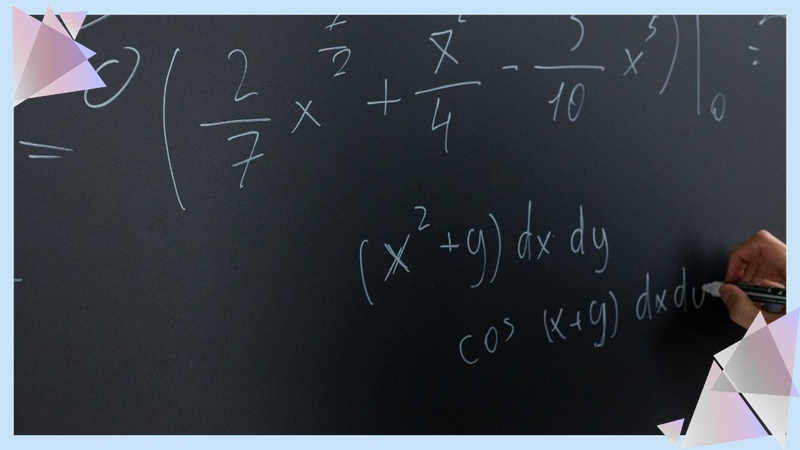 = 0 ( 2/7 x^(7/2) + x^2/4 - 3/10 x^5 ) |_0 =
(x^2 + y) dx dy
cos (x+y) dx dy